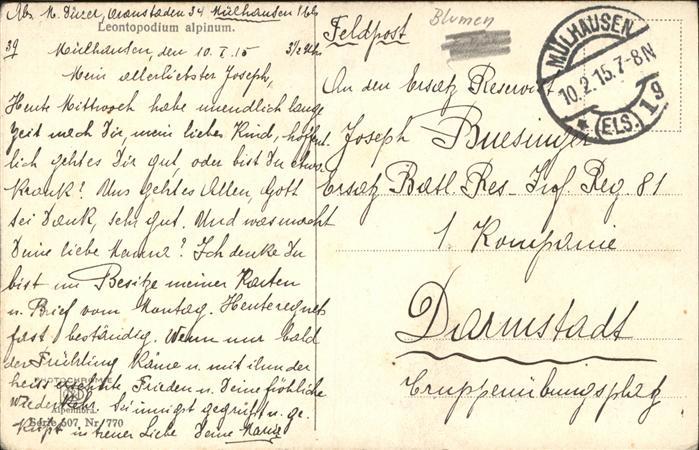 Abs. M. Dürer, Oranstaden 34 Mülhausen i/Els
Leontopodium alpinum.
39 Mülhausen, den 10. II. 15 3 1/2 Uhr
Mein allerliebster Joseph,
Heute Mittwoch habe unendlich lange
Zeit nach Dir, mein liebes Kind, hoffent-
lich geht es Dir gut, oder bist Du etwa
krank? Uns geht es Allen, Gott
sei Dank, sehr gut. Und was macht
Deine liebe Mama? Ich denke Du
bist im Besitze meiner Karten
u. Brief vom Montag. Heute regnets
fast beständig. Wenn nur bald
der Frühling käme u. mit ihm der
heiss ersehnte Frieden u. Deine fröhliche
Wiederkehr. Sei innigst gegrüßt u. ge-
küßt in treuer Liebe Deine
Alpenflora.
Serie 507, Nr. 770
Feldpost
Blumen
MÜLHAUSEN
10.2.15.7-8N
* (ELS.) 19
An den Ersatz Reservist
Joseph Buesinger
Ersatz Batl. Res. Inf. Reg. 81
1. Kompanie
Darmstadt
Truppenübungsplatz